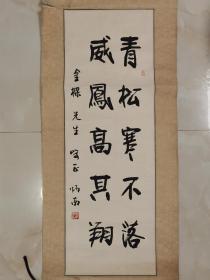 青松寒不落
威鳳高其翔
金樑先生
哂正 炳南